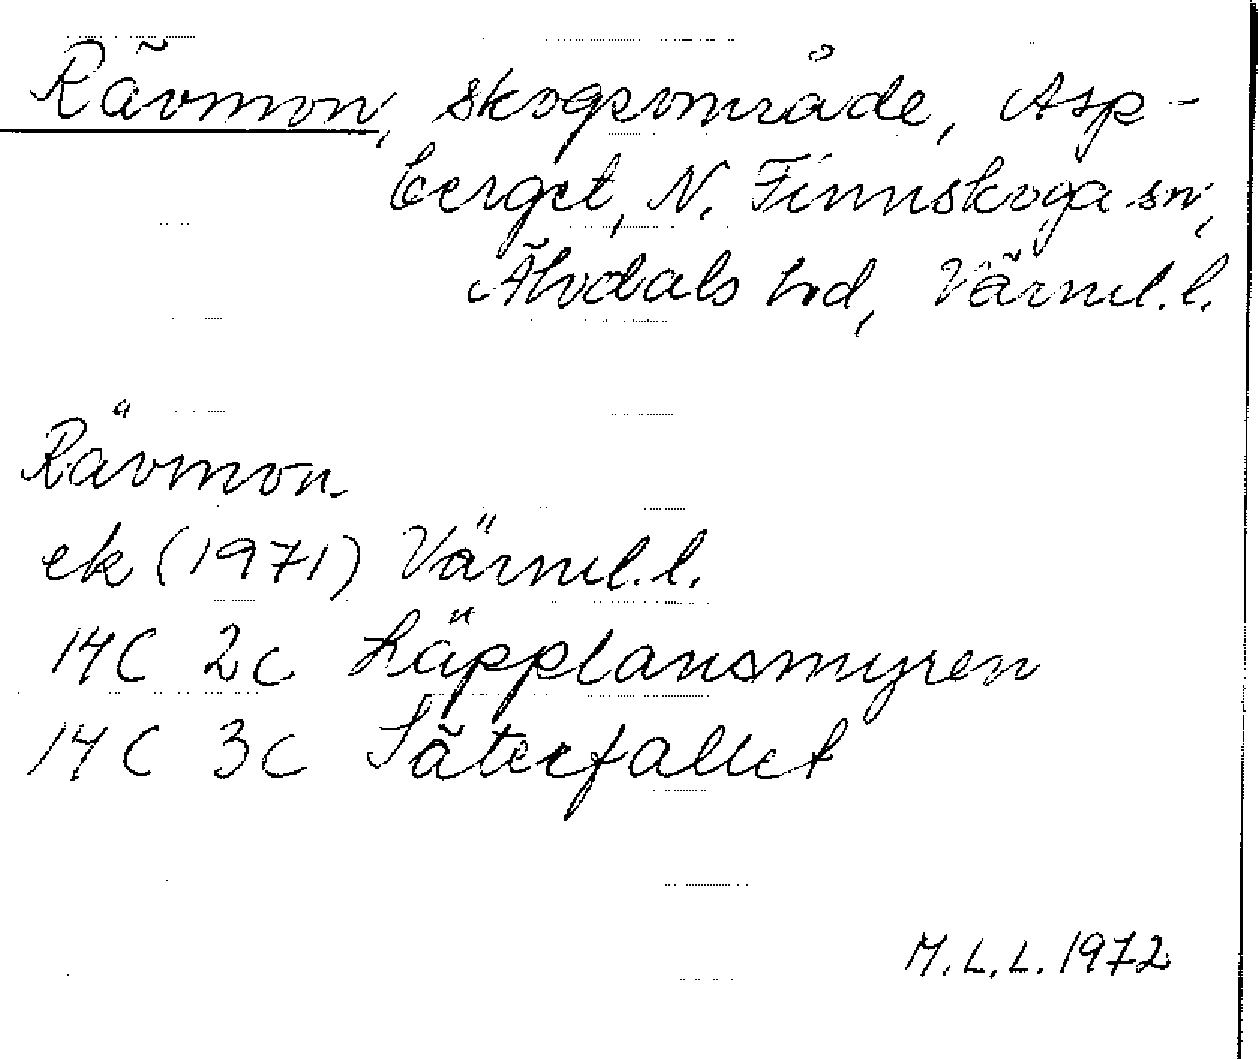 Rävmon, skogsområde, Asp-
berget, N. Finnskoga sn,
Älvdals hd, Värml. l.
Rävmon
ek (1971) Värml. l.
14C 2c Läpplansmyren
14C 3c Säterfallet
M.L.L. 1972